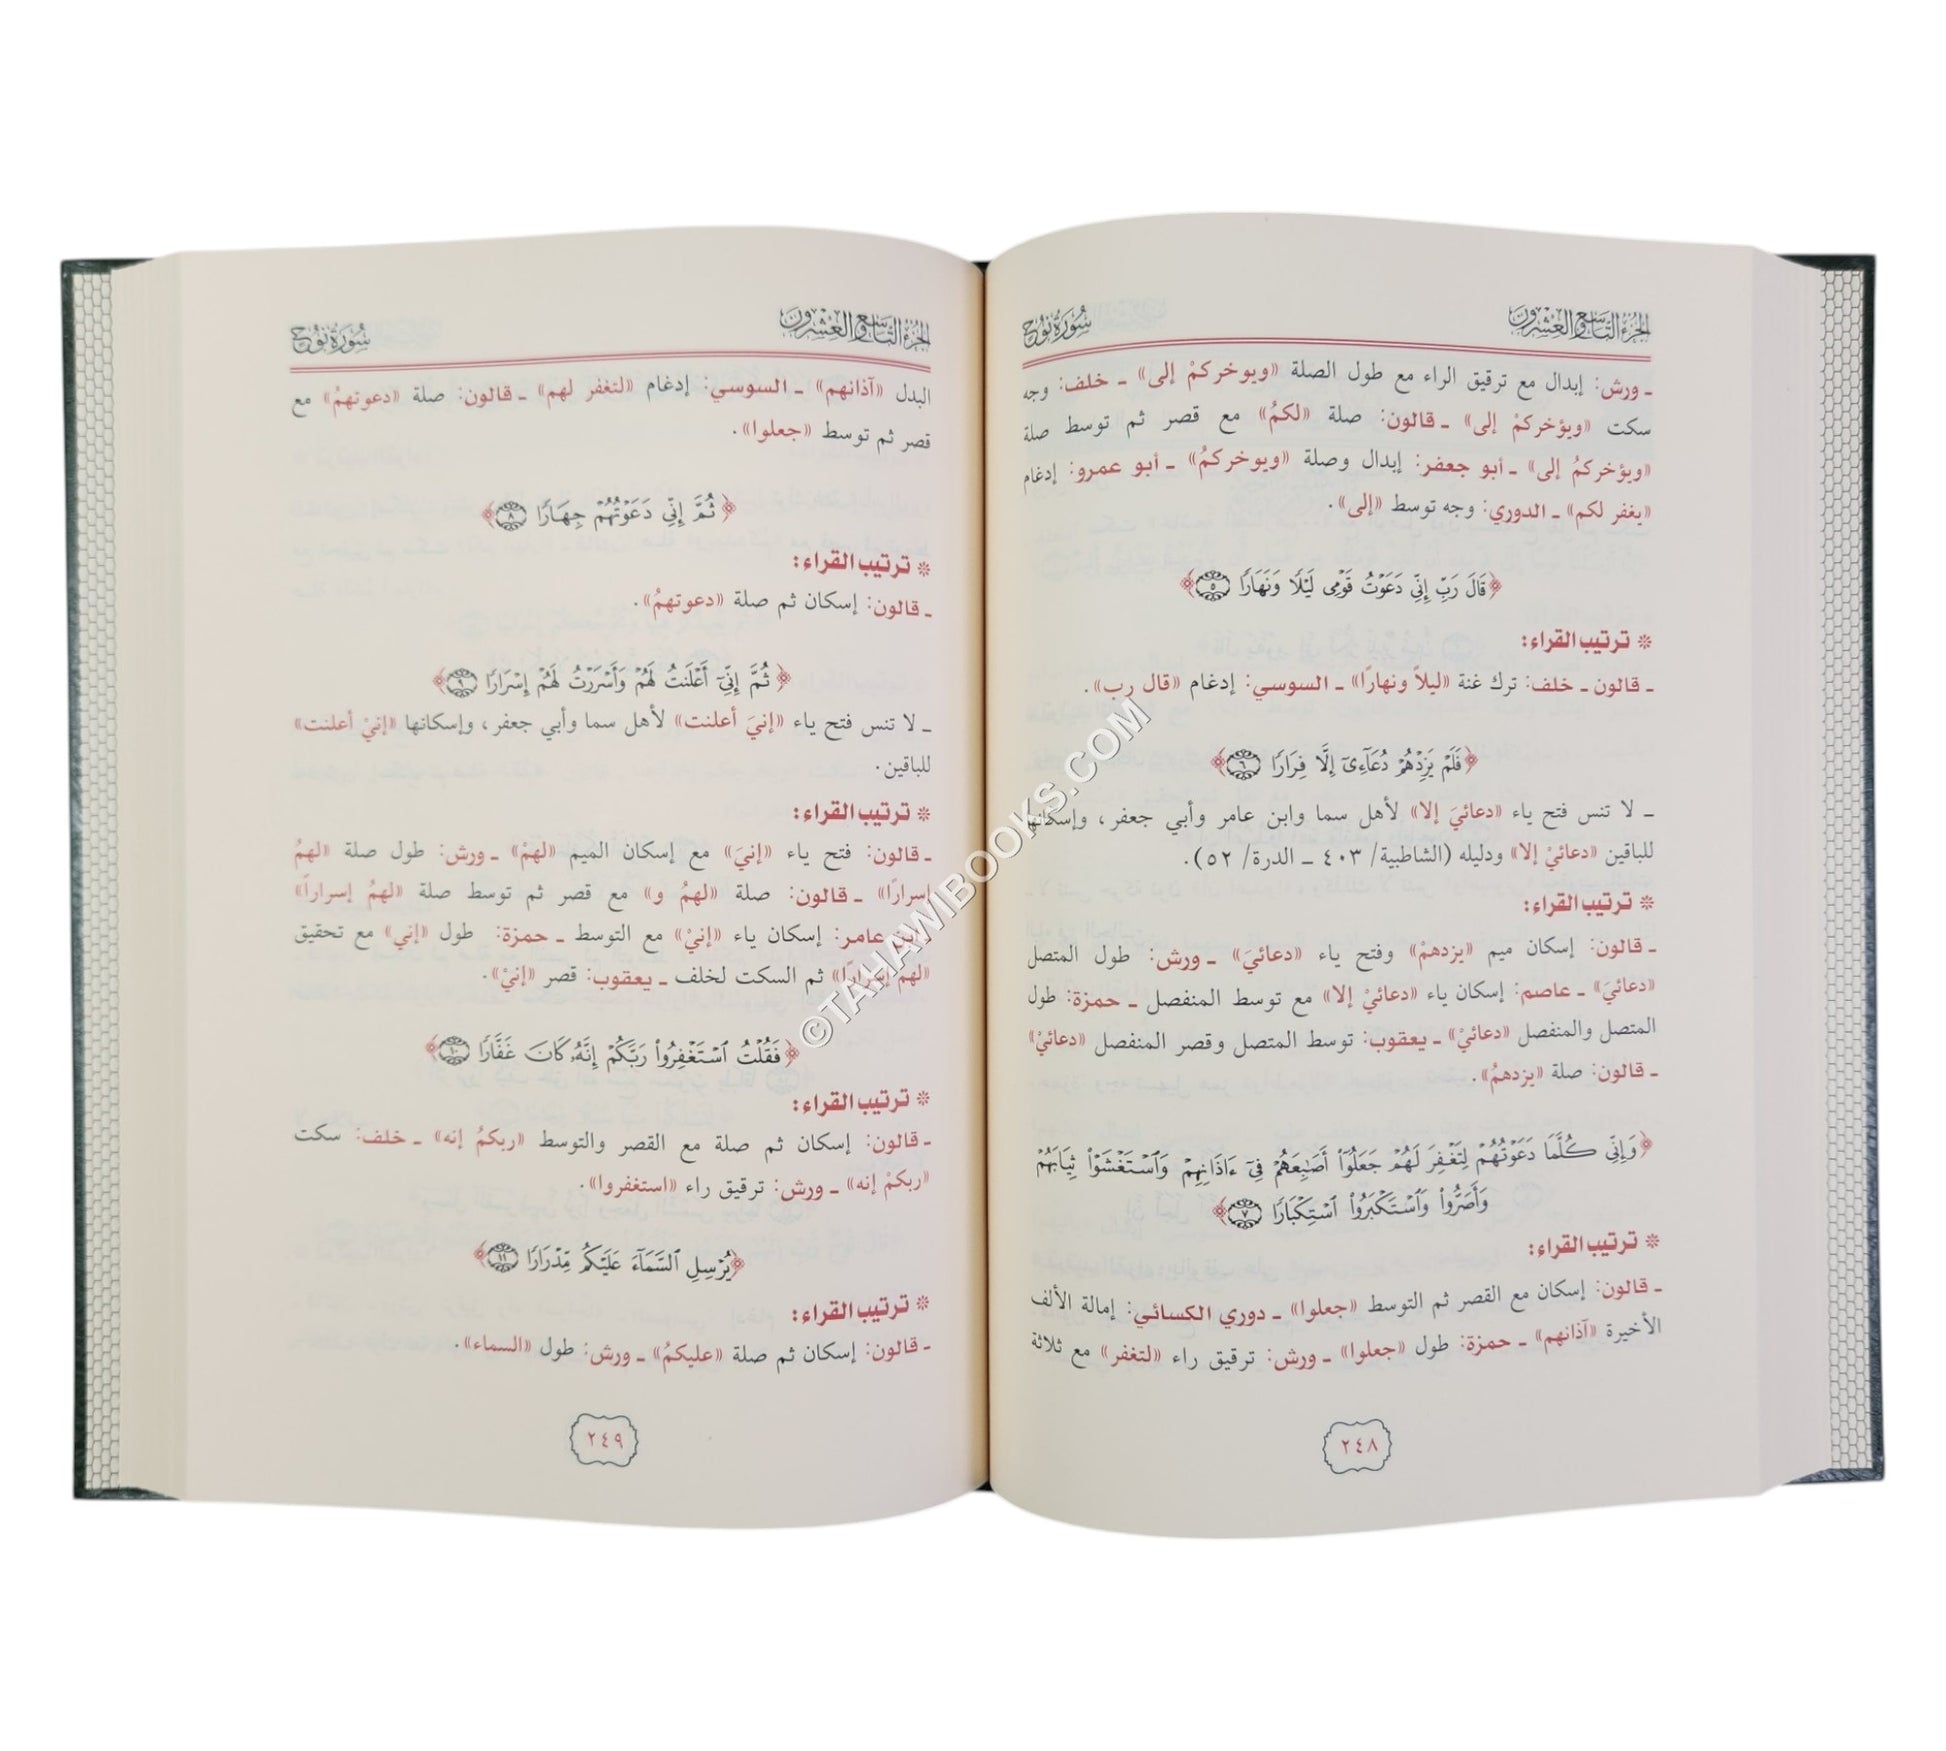 الجزء التاسع والعشرون
سورة نوح
ـ ورش: إبدال مع ترقيق الراء مع طول الصلة «ويوخركمْ إلى» ـ خلف: وجه
سكت «ويؤخركمْ إلى» ـ قالون: صلة «لكمُ» مع قصر ثم توسط صلة
«ويؤخركمُ إلى» ـ أبو جعفر: إبدال وصلة «ويوخركمُ» ـ أبو عمرو: إدغام
«يغفر لكم» ـ الدوري: وجه توسط «إلى».
﴿قَالَ رَبِّ إِنِّي دَعَوْتُ قَوْمِي لَيْلًا وَنَهَارًا ۝٥﴾
* ترتيب القراء:
ـ قالون ـ خلف: ترك غنة «ليلاً ونهارًا» ـ السوسي: إدغام «قال رب».
﴿فَلَمْ يَزِدْهُمْ دُعَآءِىٓ إِلَّا فِرَارًا ۝٦﴾
ـ لا تنس فتح ياء «دعائيَ إلا» لأهل سما وابن عامر وأبي جعفر، وإسكانها
للباقين «دعائيْ إلا» ودليله (الشاطبية/ ٤٠٣ ـ الدرة/ ٥٢).
* ترتيب القراء:
ـ قالون: إسكان ميم «يزدهمْ» وفتح ياء «دعائيَ» ـ ورش: طول المتصل
«دعائيَ» ـ عاصم: إسكان ياء «دعائيْ إلا» مع توسط المنفصل ـ حمزة: طول
المتصل والمنفصل «دعائيْ» ـ يعقوب: توسط المتصل وقصر المنفصل «دعائيْ»
ـ قالون: صلة «يزدهمُ».
﴿وَإِنِّي كُلَّمَا دَعَوْتُهُمْ لِتَغْفِرَ لَهُمْ جَعَلُوٓا۟ أَصَٰبِعَهُمْ فِىٓ ءَاذَانِهِمْ وَٱسْتَغْشَوْا۟ ثِيَابَهُمْ
وَأَصَرُّوا۟ وَٱسْتَكْبَرُوا۟ ٱسْتِكْبَارًا ۝٧﴾
* ترتيب القراء:
ـ قالون: إسكان مع القصر ثم التوسط «جعلوا» ـ دوري الكسائي: إمالة الألف
الأخيرة «آذانهم» ـ حمزة: طول «جعلوا» ـ ورش: ترقيق راء «لتغفر» مع ثلاثة
٢٤٨
الجزء التاسع والعشرون
سورة نوح
البدل «آذانهم» ـ السوسي: إدغام «لتغفر لهم» ـ قالون: صلة «دعوتهمُ» مع
قصر ثم توسط «جعلوا».
﴿ثُمَّ إِنِّي دَعَوْتُهُمْ جِهَارًا ۝٨﴾
* ترتيب القراء:
ـ قالون: إسكان ثم صلة «دعوتهمُ».
﴿ثُمَّ إِنِّىٓ أَعْلَنتُ لَهُمْ وَأَسْرَرْتُ لَهُمْ إِسْرَارًا ۝٩﴾
ـ لا تنس فتح ياء «إنيَ أعلنت» لأهل سما وأبي جعفر، وإسكانها «إنيْ أعلنت»
للباقين.
* ترتيب القراء:
ـ قالون: فتح ياء «إنيَ» مع إسكان الميم «لهمْ» ـ ورش: طول صلة «لهمُ
إسرارًا» ـ قالون: صلة «لهمُ و» مع قصر ثم توسط صلة «لهمُ إسراراً»
ـ ابن عامر: إسكان ياء «إنيْ» مع التوسط ـ حمزة: طول «إني» مع تحقيق
«لهم إسرارًا» ثم السكت لخلف ـ يعقوب: قصر «إنيْ».
﴿فَقُلْتُ ٱسْتَغْفِرُوا۟ رَبَّكُمْ إِنَّهُۥ كَانَ غَفَّارًا ۝١٠﴾
* ترتيب القراء:
ـ قالون: إسكان ثم صلة مع القصر والتوسط «ربكمُ إنه» ـ خلف: سكت
«ربكمْ إنه» ـ ورش: ترقيق راء «استغفروا».
﴿يُرْسِلِ ٱلسَّمَآءَ عَلَيْكُم مِّدْرَارًا ۝١١﴾
* ترتيب القراء:
ـ قالون: إسكان ثم صلة «عليكمُ» ـ ورش: طول «السماء».
٢٤٩
©TAHAWIBOOKS.COM